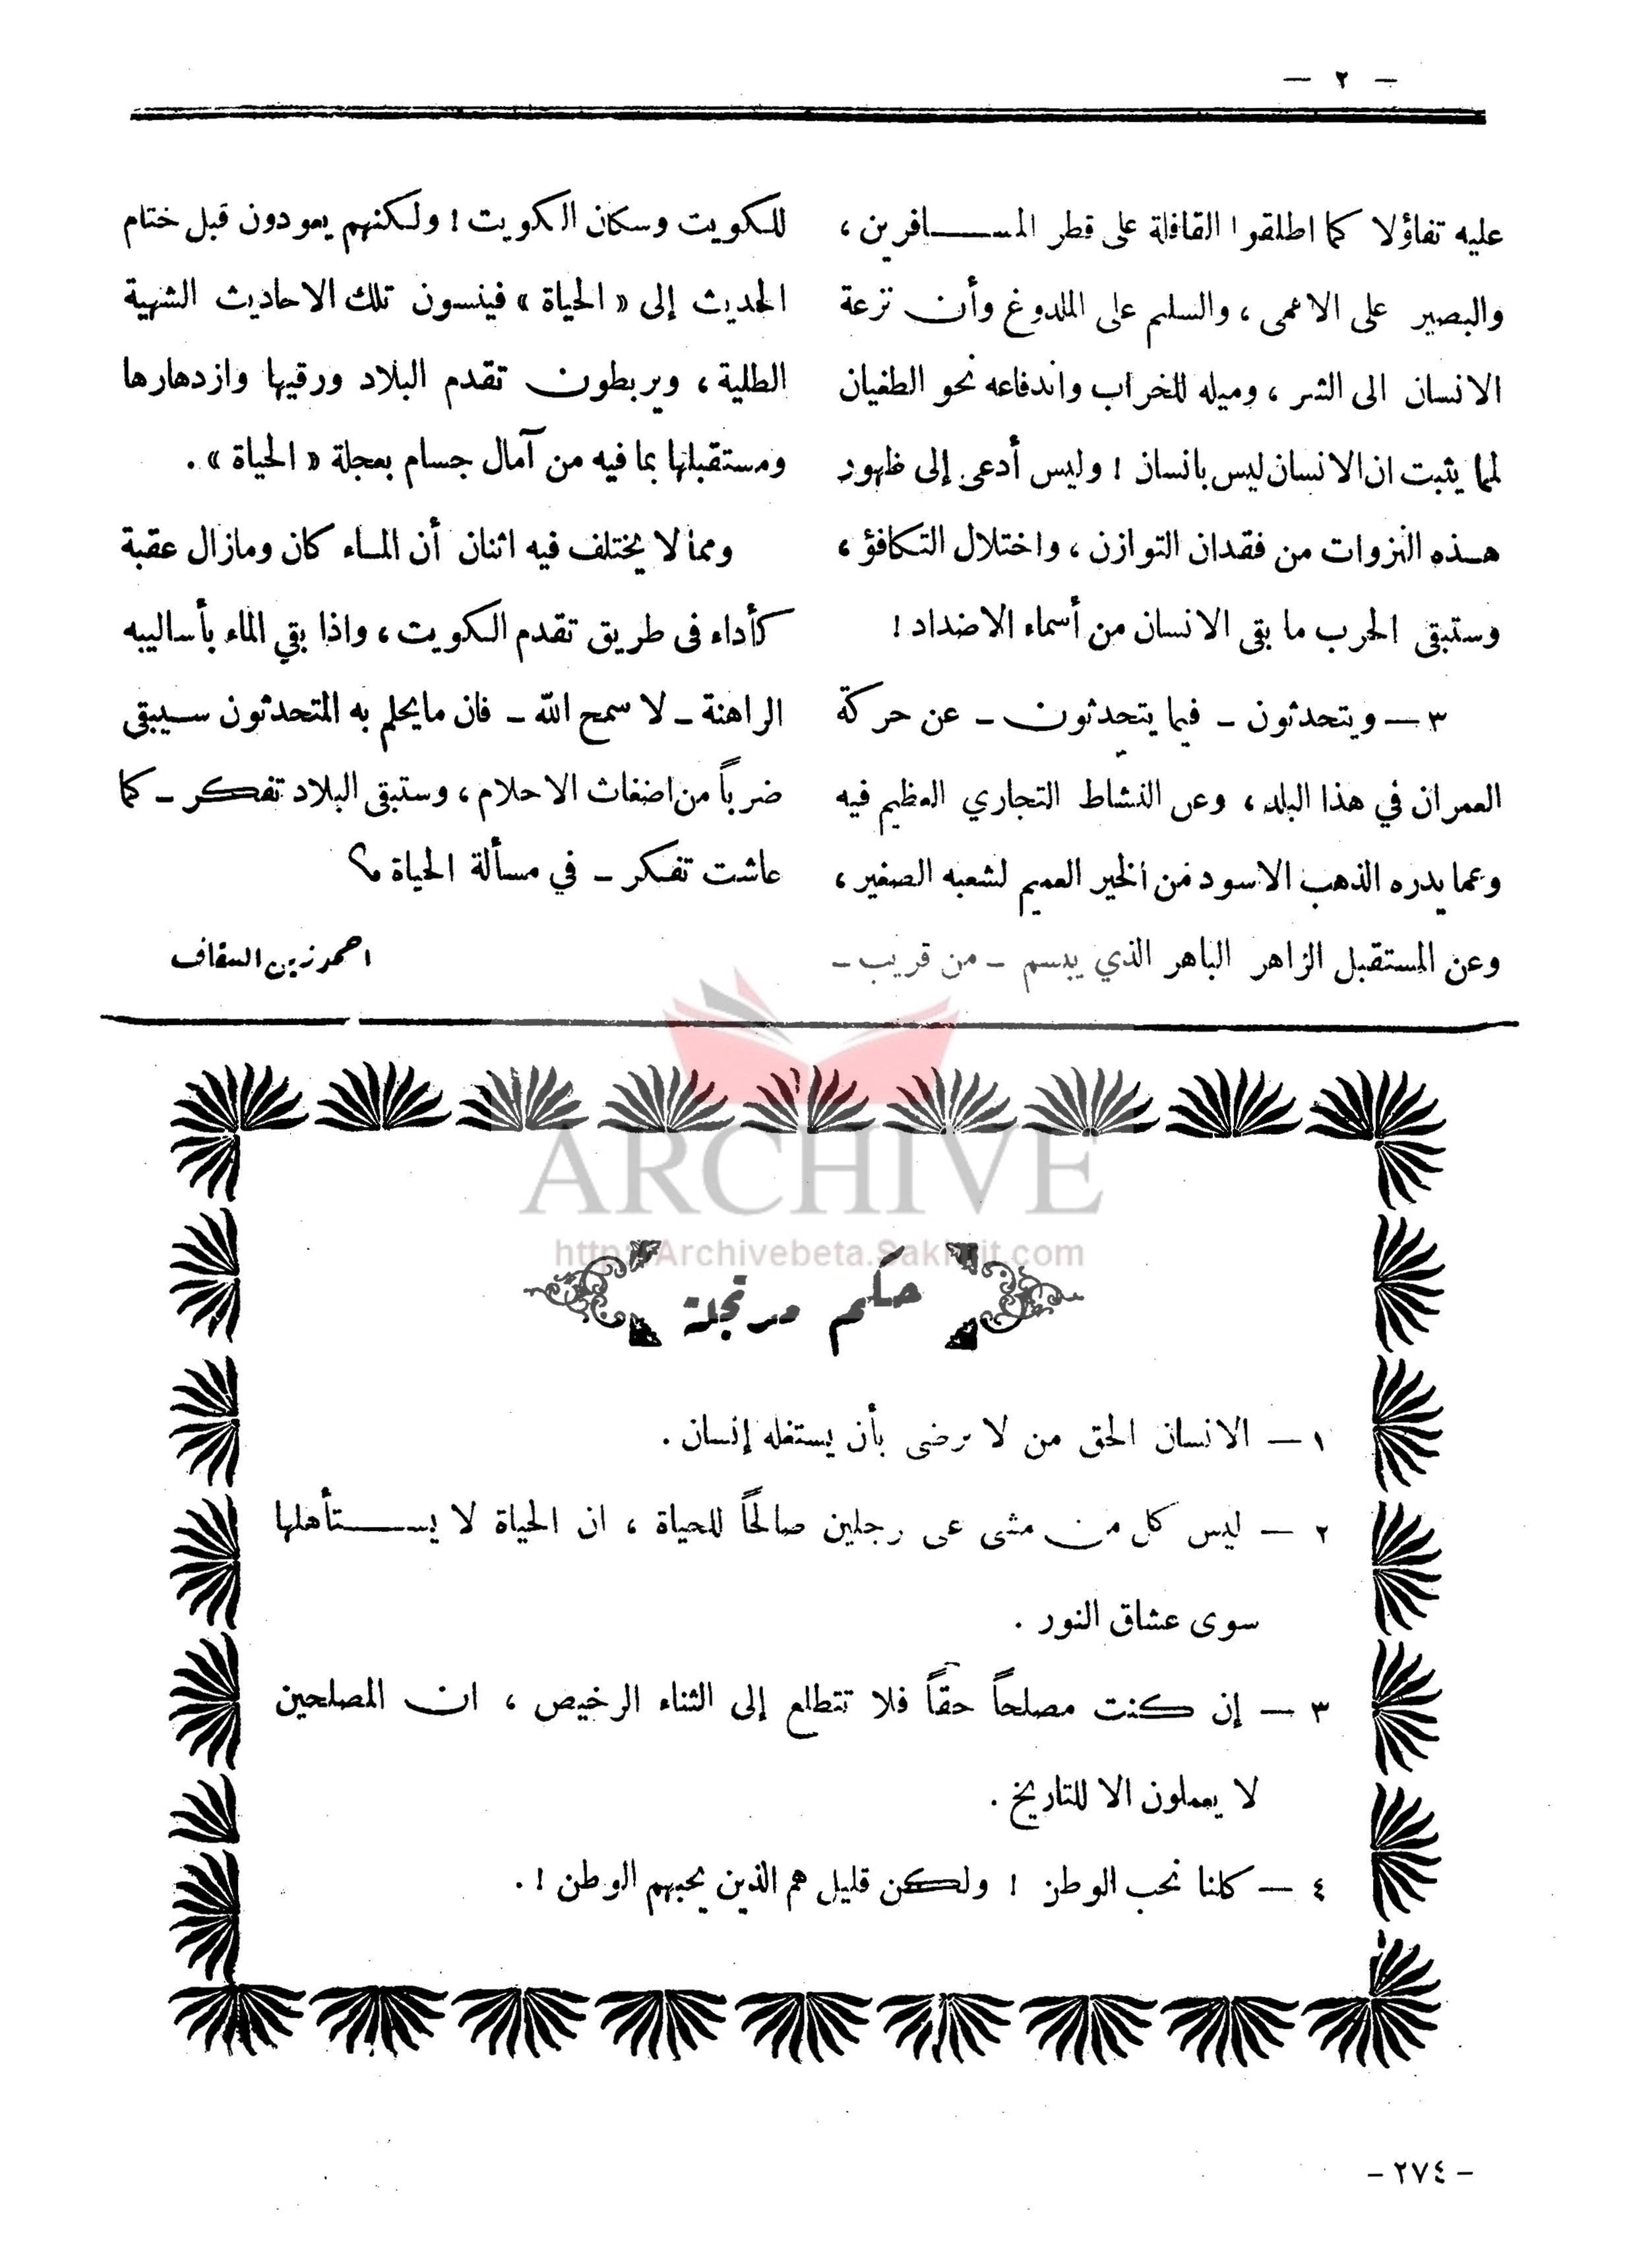 — ٢ —
عليه تفاؤلا كما اطلقوا القافلة على قطر المسافرين ،
والبصير على الاعمى ، والسليم على الملدوغ وأن نزعة
الانسان الى الشر ، وميله للخراب واندفاعه نحو الطغيان
لمما يثبت ان الانسان ليس بانسان ! وليس أدعى إلى ظهور
هذه النزوات من فقدان التوازن ، واختلال التكافؤ ،
وستبقى الحرب ما بقى الانسان من أسماء الاضداد !
٣ — ويتحدثون – فيما يتحدثون – عن حركة
العمران في هذا البلد ، وعن النشاط التجاري العظيم فيه
وعما يدره الذهب الاسود من الخير العميم لشعبه الصغير ،
وعن المستقبل الزاهر الباهر الذي يبسم – من قريب –
للكويت وسكان الكويت ! ولكنهم يعودون قبل ختام
الحديث إلى « الحياة » فينسون تلك الاحاديث الشهية
الطلية ، ويربطون تقدم البلاد ورقيها وازدهارها
ومستقبلها بما فيه من آمال جسام بعجلة « الحياة » .
ومما لا يختلف فيه اثنان أن الماء كان ومازال عقبة
كأداء فى طريق تقدم الكويت ، واذا بقي الماء بأساليبه
الراهنة – لا سمح الله – فان مايحلم به المتحدثون سيبقى
ضرباً من اضغاث الاحلام ، وستبقى البلاد تفكر – كما
عاشت تفكر – في مسألة الحياة ؟
احمد زين السقاف
ARCHIVE
http://Archivebeta.Sakhrit.com
حكم مرتجلة
١ — الانسان الحق من لا يرضى بأن يستغله إنسان .
٢ — ليس كل من مشى على رجلين صالحاً للحياة ، ان الحياة لا يستأهلها
سوى عشاق النور .
٣ — إن كنت مصلحاً حقاً فلا تتطلع إلى الثناء الرخيص ، ان المصلحين
لا يعملون الا للتاريخ .
٤ — كلنا نحب الوطن ! ولكن قليل هم الذين يحبهم الوطن ! .
– ٢٧٤ –